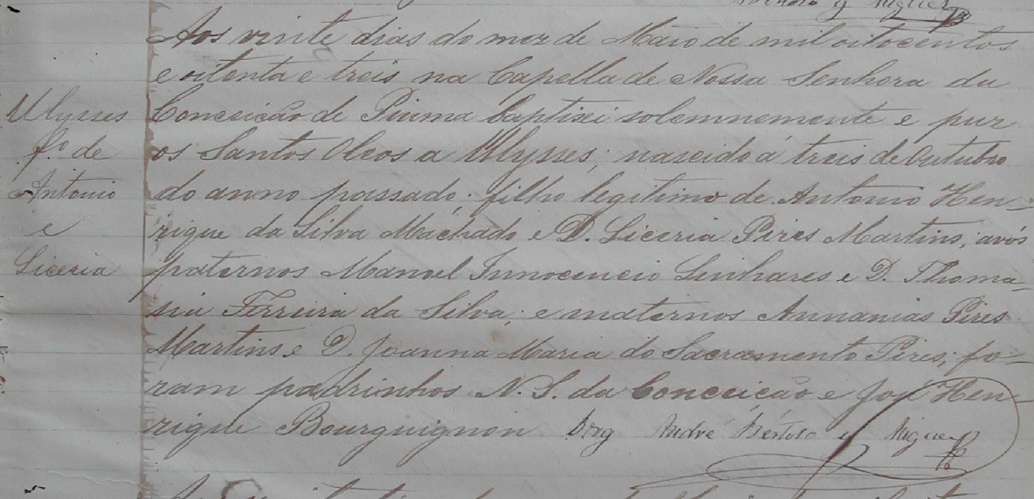 y Miguez
Aos vinte dias do mez de Maio de mil oitocentos
e oitenta e treis na Capella de Nossa Senhora da
Ulysses
Conceição de Piuma baptizei solemnemente e puz
f.º de
os Santos Oleos a Ulysses, nascido á treis de Outubro
Antonio
do anno passado filho legitimo de Antonio Hen-
e
rique da Silva Machado e D. Liceria Pires Martins, avós
Liceria
paternos Manoel Innocencio Linhares e D. Thoma-
sia Ferreira da Silva, e maternos Annanias Pires
Martins e D. Joanna Maria do Sacramento Pires; fo-
ram padrinhos N. S. da Conceição e José Hen
rique Bourguignon André y Miguez